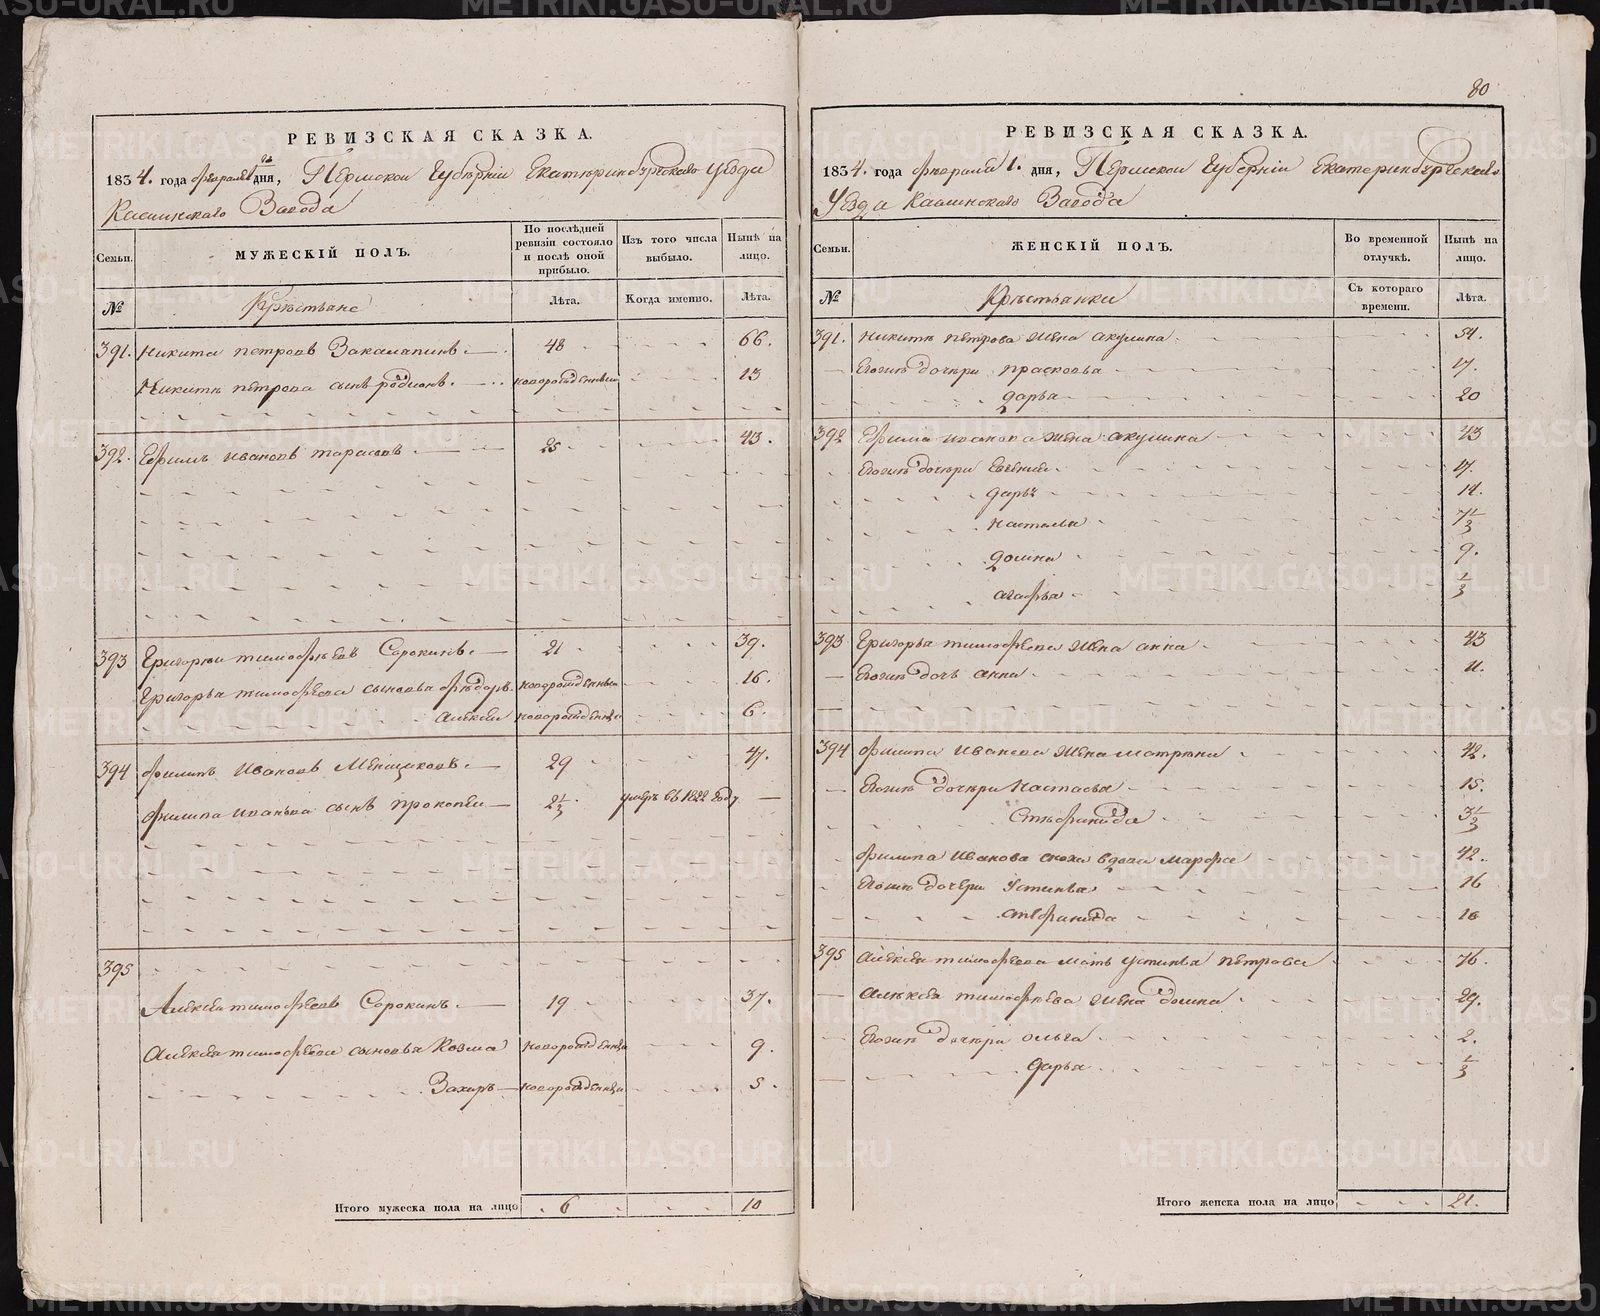 РЕВИЗСКАЯ СКАЗКА.
1834. года февраля 1 дня, Пермской Губернiи Екатеринбургскаго уезда
Каслинскаго Завода
Семьи.
МУЖЕСКІЙ ПОЛЪ.
По послѣдней ревизіи состояло и послѣ оной прибыло.
Изъ того числа выбыло.
Нынѣ на лицо.
№
Крестьяне
Лѣта.
Когда именно.
Лѣта.
391. Никита петровъ 48 66.
Никиты петрова сынъ родионъ. новорожденный 13
392. Ефимъ ивановъ тарасовъ 25 43.
393 Григорiи тимофѣевъ Сорокинъ. 21 39.
Григорья тимофѣева сыновья фѣдоръ. новорожденныи 16.
алексеи новорожденныи 6.
394 филипъ Ивановъ Менщиковъ. 29 47.
филипа иванова сынъ прокопеи 2 1/3 умеръ въ 1822 году.
395
Алексеи тимофѣевъ Сорокинъ. 19 37.
алексея тимофѣева сыновья Козма новорожденныи 9.
Захаръ новорожденныи 5.
Итого мужеска пола на лицо 6 10
80
РЕВИЗСКАЯ СКАЗКА.
1834. года февраля 1. дня, Пермской Губернiи Екатеринбургскаго
Уезда Каслинскаго Завода
Семьи.
ЖЕНСКІЙ ПОЛЪ.
Во временной отлучкѣ.
Нынѣ на лицо.
№
Крестьянки
Съ котораго времени.
Лѣта.
391. Никиты петрова жена акулина. 54.
Егожъ дочери прасковья 17.
дарья 20
392 Ефима иванова жена акулина 43
Егожъ дочери 17.
дарья 14.
настасья 7 1/3
домна 9.
агафья 1/3
393 Григорья тимофѣева жена анна 43
Егожъ дочь анна 11.
394 филипа Иванова жена матрена 42.
Егожъ дочери Настасья 15.
Стефанида 3 1/3
филипа Иванова сноха вдова марфа 42.
Егожъ дочери Устинья 16
стефанида 10
395 алексея тимофѣева мать устинья пѣтрова 76.
алексея тимофѣева жена домна 29.
Егожъ дочери ольга 2.
дарья 1/3
Итого женска пола на лицо 21.
METRIKI.GASO-URAL.RU